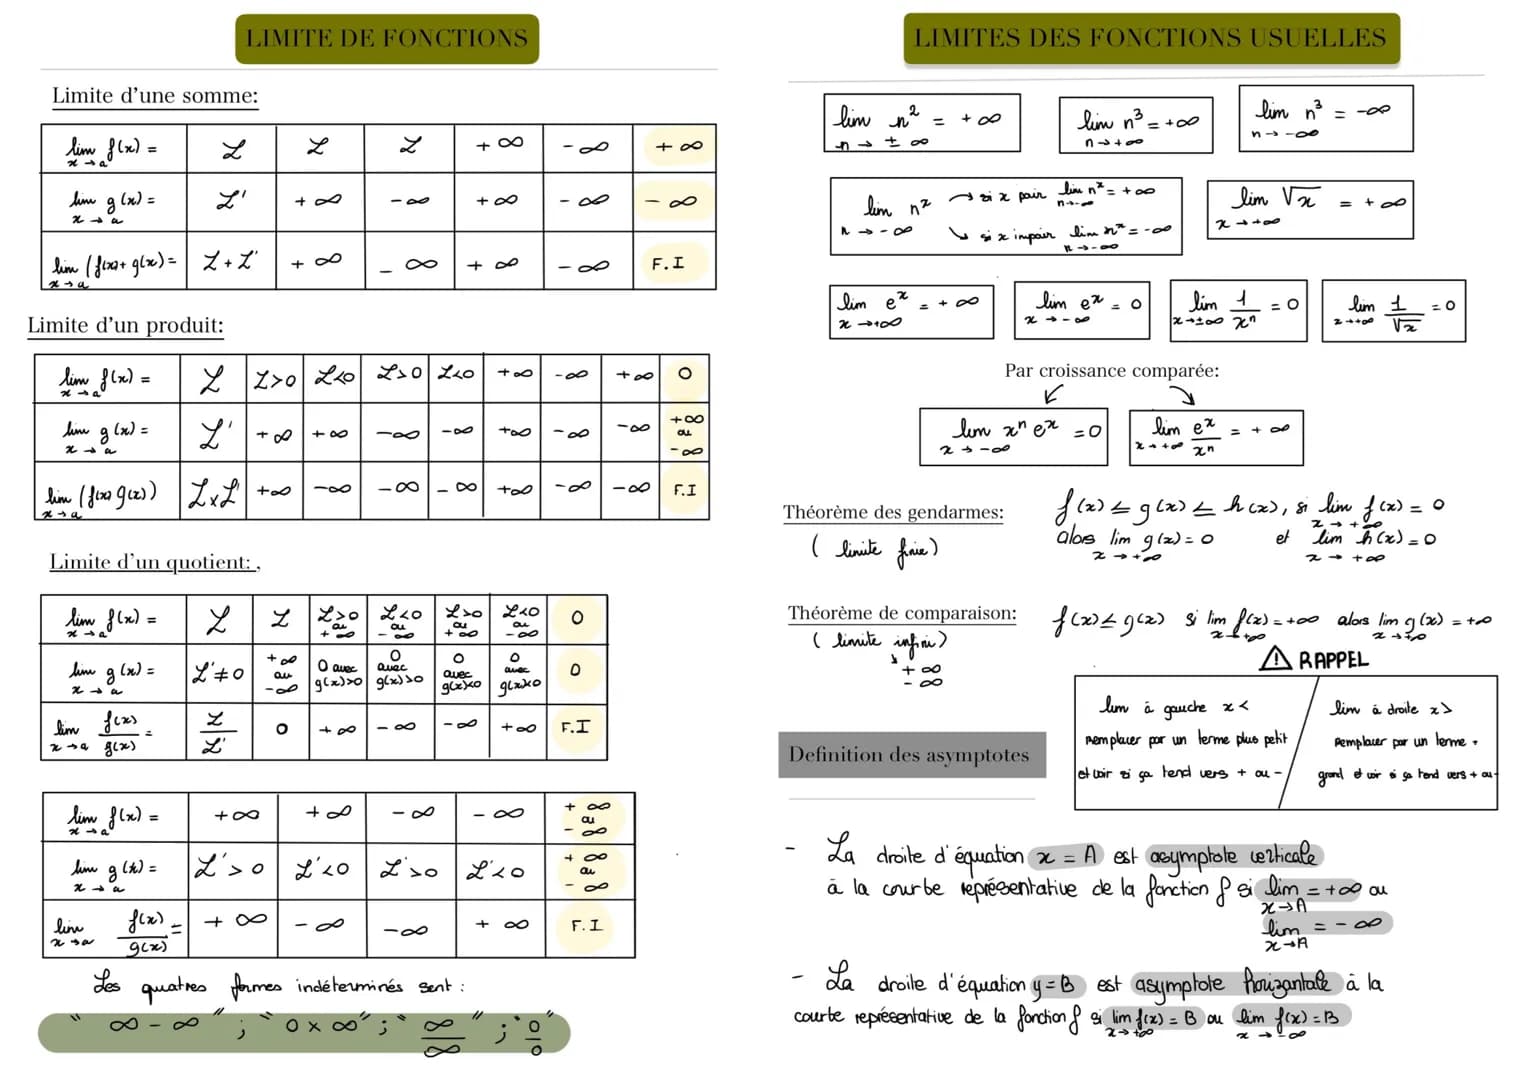 LIMITE DE FONCTIONS
Limite d'une somme:
lim f(x) = | L | L | L | +∞ | -∞ | +∞
x→a
lim g(x) = | L' | +∞ | -∞ | +∞ | -∞ | -∞
x→a
lim (f(x)+g(x)= | L+L' | +∞ | -∞ | +∞ | -∞ | F.I
x→a
Limite d'un produit:
lim f(x) = | L | L>0 | L<0 | L>0 | L<0 | +∞ | -∞ | +∞ | 0
x→a
lim g(x) = | L' | +∞ | +∞ | -∞ | -∞ | +∞ | -∞ | -∞ | +∞ ou -∞
x→a
lim (f(x)g(x)) | L×L' | +∞ | -∞ | -∞ | -∞ | +∞ | -∞ | -∞ | F.I
x→a
Limite d'un quotient: ,
lim f(x) = | L | L | L>0 ou +∞ | L<0 ou -∞ | L>0 ou +∞ | L<0 ou -∞ | 0
x→a
lim g(x) = | L'≠0 | +∞ ou -∞ | 0 avec g(x)>0 | 0 avec g(x)>0 | 0 avec g(x)<0 | 0 avec g(x)<0 | 0
x→a
lim f(x)/g(x) = | L/L' | 0 | +∞ | -∞ | -∞ | +∞ | F.I
x→a
lim f(x) = | +∞ | +∞ | -∞ | -∞ | +∞ ou -∞
x→a
lim g(x) = | L'>0 | L'<0 | L'>0 | L'<0 | +∞ ou -∞
x→a
lim f(x)/g(x) = | +∞ | -∞ | -∞ | +∞ | F.I
x→a
Les quatres formes indéterminés sent :
"∞-∞" ; "0×∞" ; "∞/∞" ; "0/0"
LIMITES DES FONCTIONS USUELLES
lim n² = +∞
n→±∞
lim n³ = +∞
n→+∞
lim n³ = -∞
n→-∞
lim nˣ → si x pair lim nˣ = +∞
n→-∞ n→-∞
↘ si x impair lim nˣ = -∞
n→-∞
lim √x = +∞
x→+∞
lim eˣ = +∞
x→+∞
lim eˣ = 0
x→-∞
lim 1/xⁿ = 0
x→±∞
lim 1/√x = 0
x→+∞
Par croissance comparée:
lim xⁿ eˣ = 0
x→-∞
lim eˣ/xⁿ = +∞
x→+∞
Théorème des gendarmes:
( limite finie)
f(x) ≤ g(x) ≤ h(x), si lim f(x) = 0
x→+∞
alors lim g(x) = 0 et lim h(x) = 0
x→+∞ x→+∞
Théorème de comparaison:
( limite infini)
+∞
-∞
f(x) ≤ g(x) si lim f(x) = +∞ alors lim g(x) = +∞
x→+∞ x→+∞
⚠ RAPPEL
lim à gauche x<
remplacer par un terme plus petit
et voir si ça tend vers + ou -
lim à droite x>
Remplacer par un terme +
grand et voir si ça tend vers + ou -
Definition des asymptotes
- La droite d'équation x = A est asymptote verticale
à la courbe représentative de la fonction f si lim = +∞ ou
x→A
lim = -∞
x→A
- La droite d'équation y = B est asymptote horizontale à la
courbe représentative de la fonction f si lim f(x) = B ou lim f(x) = B
x→+∞ x→-∞